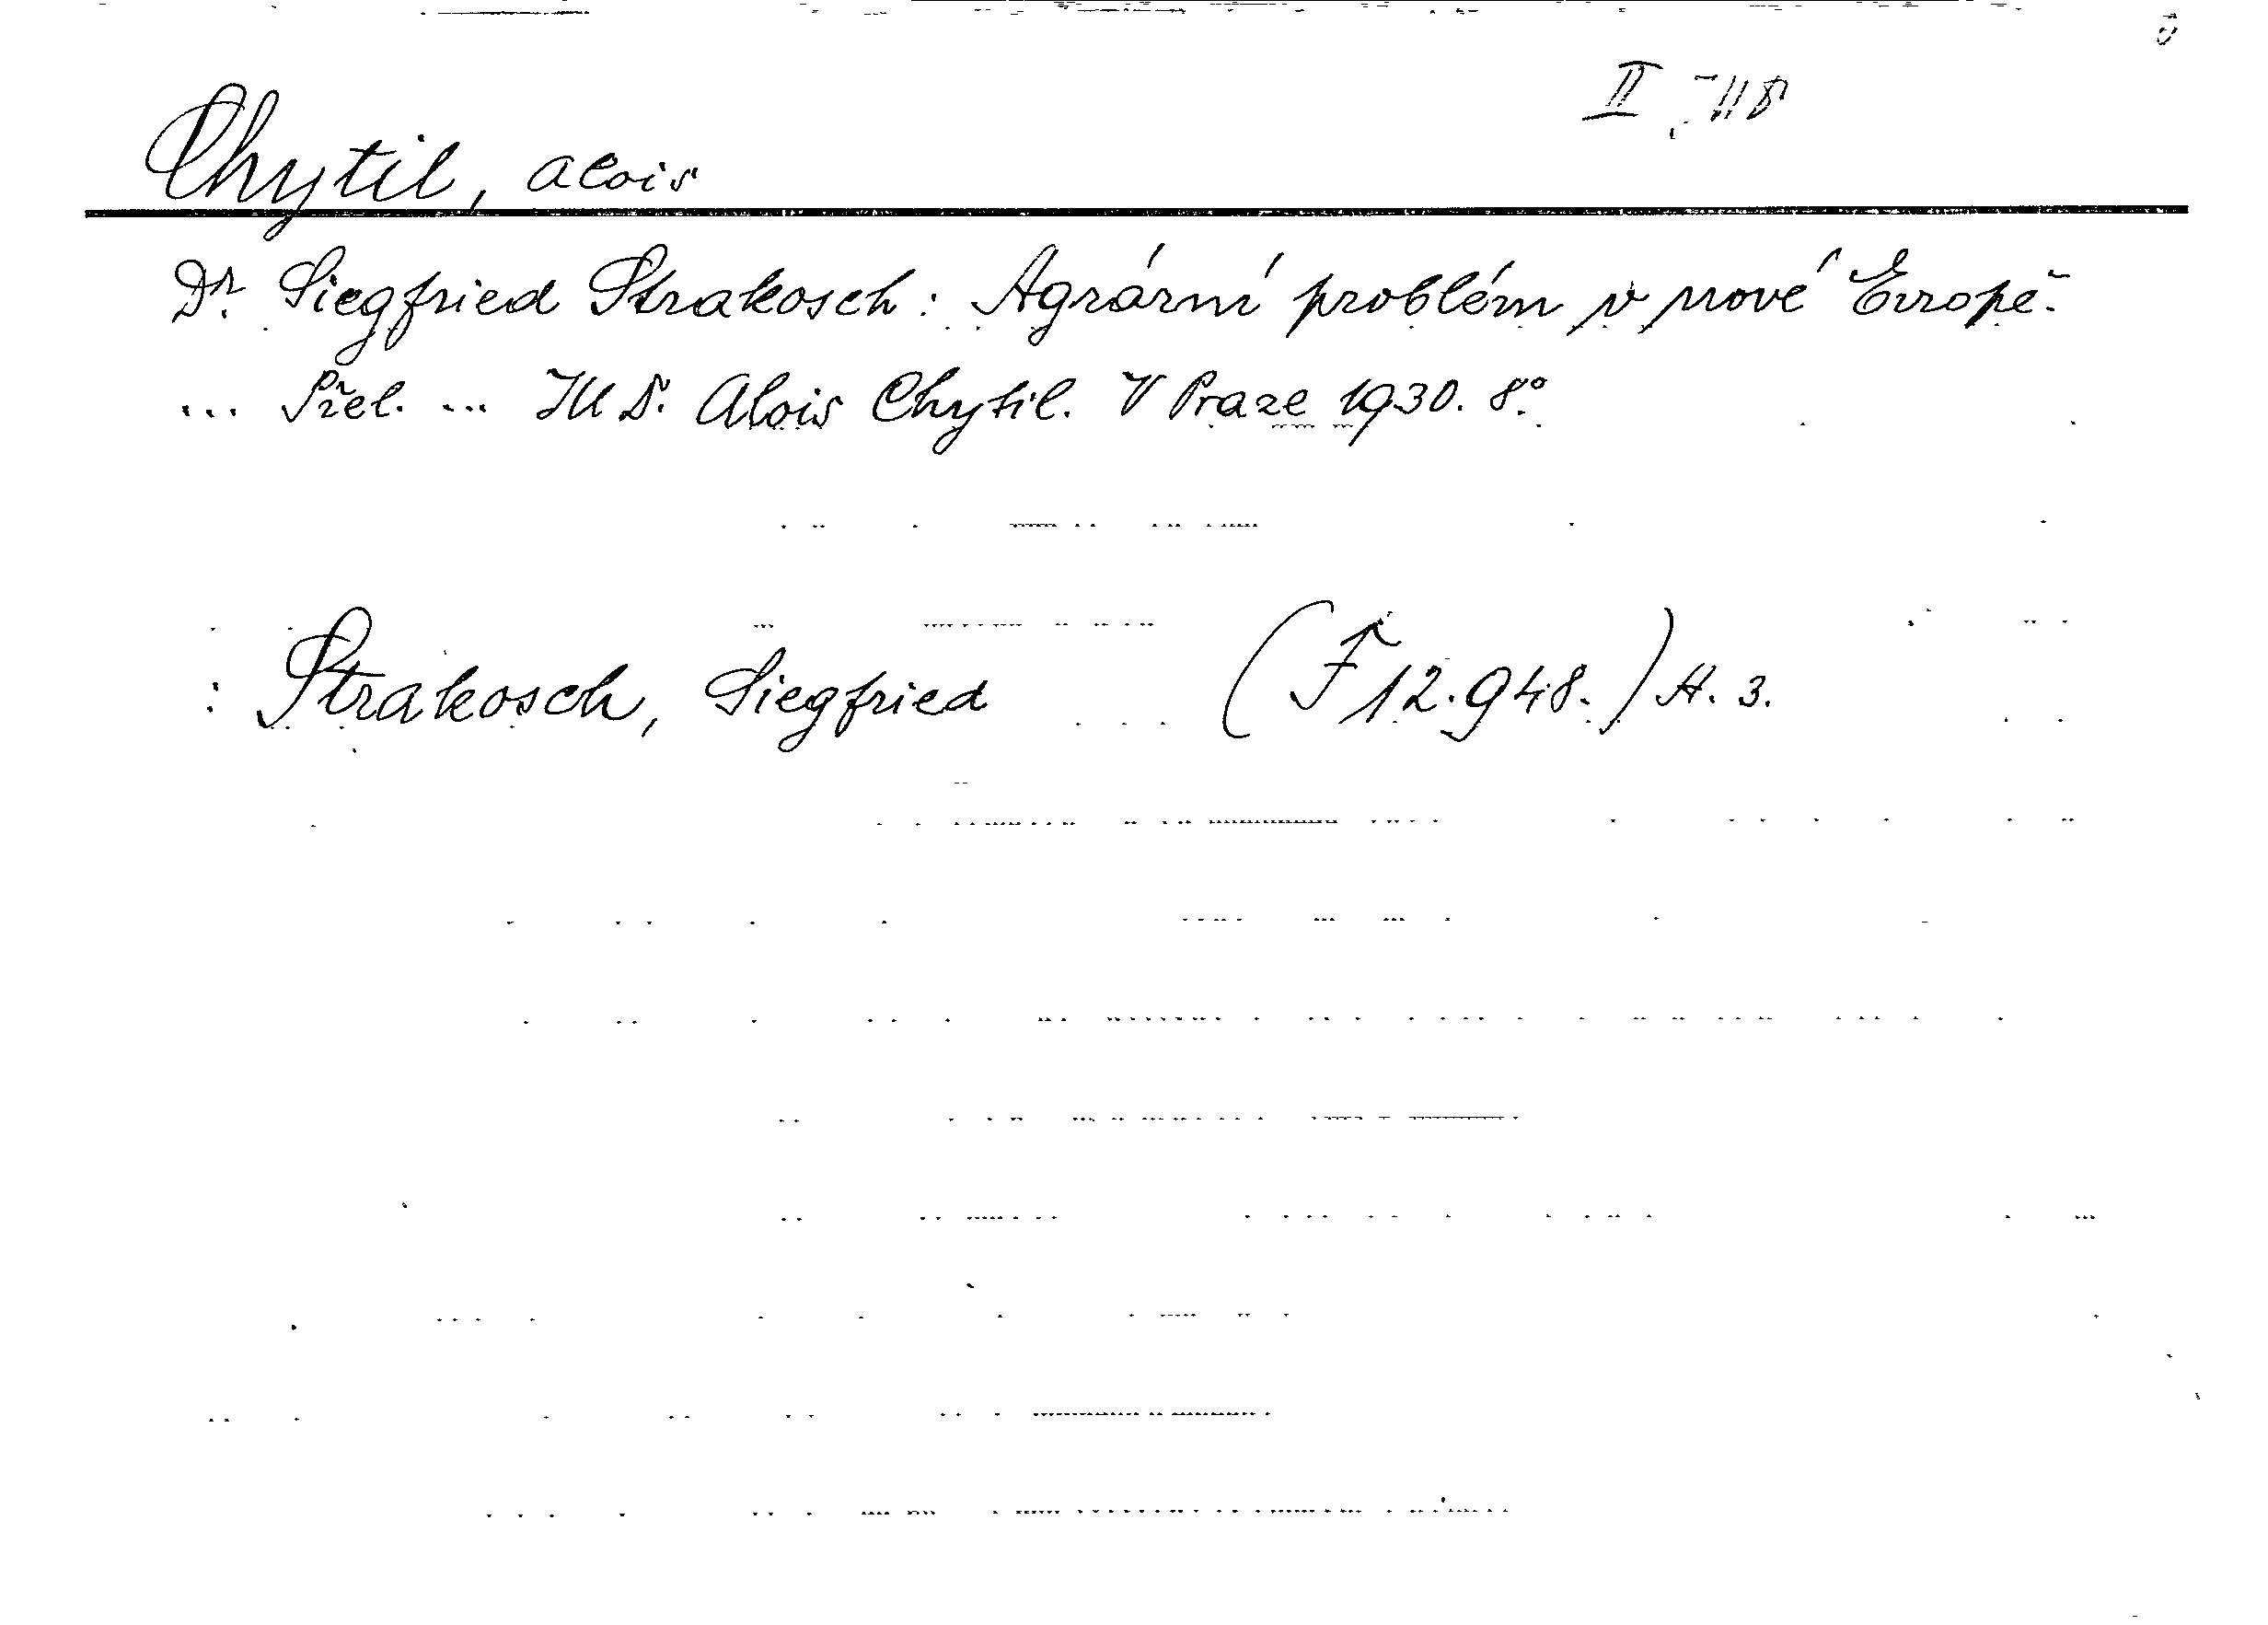 Chytil, Alois
Dr. Siegfried Strakosch: Agrární problém v nové Evropě.
... Přel. ... Alois Chytil. V Praze 1930. 8°.
: Strakosch, Siegfried (F 12.948.) A. 3.